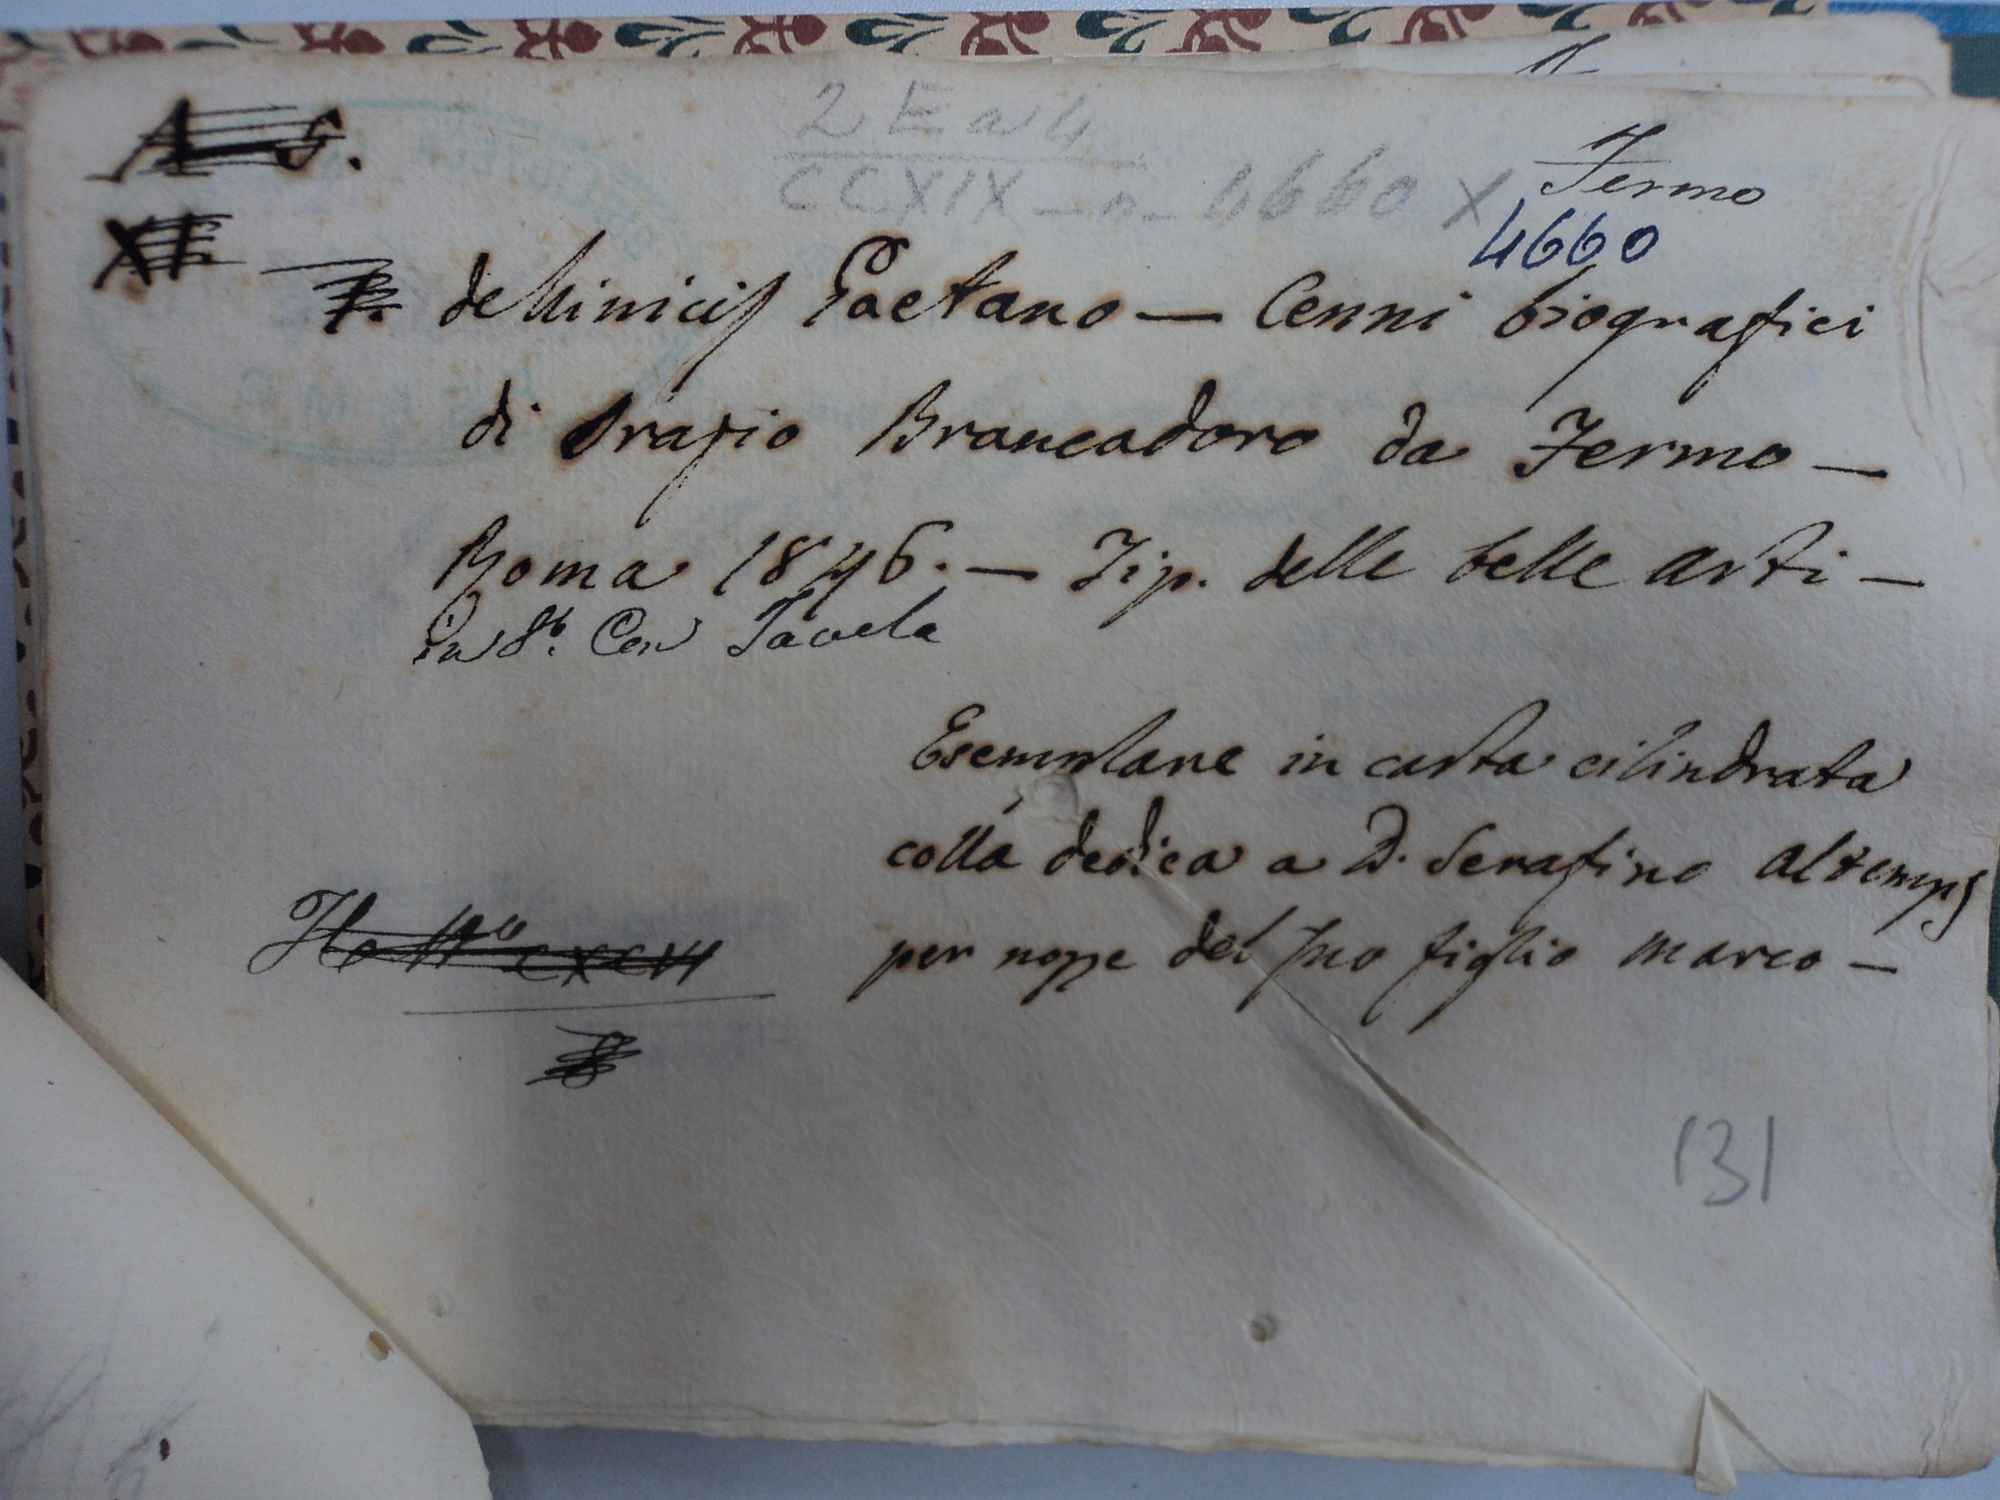 A S.
2 E a 4
CCXIX - n - 4660 X
Fermo
4660
XI
de Minicis Gaetano — Cenni biografici
di Orazio Brancadoro da Fermo —
Roma 1846. — Tip. delle belle arti —
in 8º. Con Tavola
Esemplare in carta cilindrata
colla dedica a D. Serafino Altemps
per nozze del suo figlio Marco —
CXCVI
131